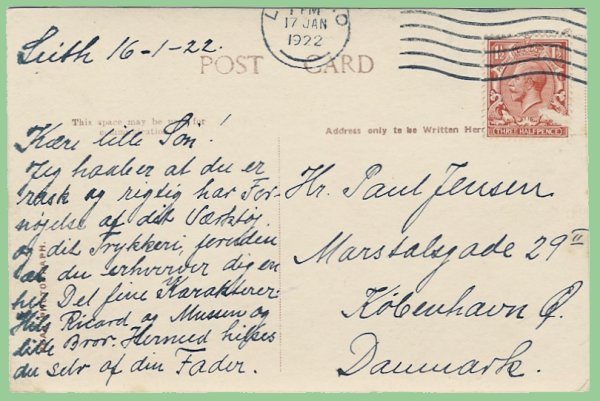 Leith 16-1-22.
1 PM
17 JAN
1922
POST CARD
1½ 1½
THREE HALFPENCE
This space may be used for
communication
Address only to be Written Here
Kære lille Søn!
Jeg haaber at du er
rask og rigtig har For-
nøjelse af dit Værktøj
og dit Trykkeri, foruden
at du erhverver dig en
hel Del fine Karakterer.
Hils Ricard og Mussen og
lille Bror. Hermed hilses
du selv af din Fader.
Hr. Paul Jensen
Marstalsgade 29 II
København Ø.
Danmark.